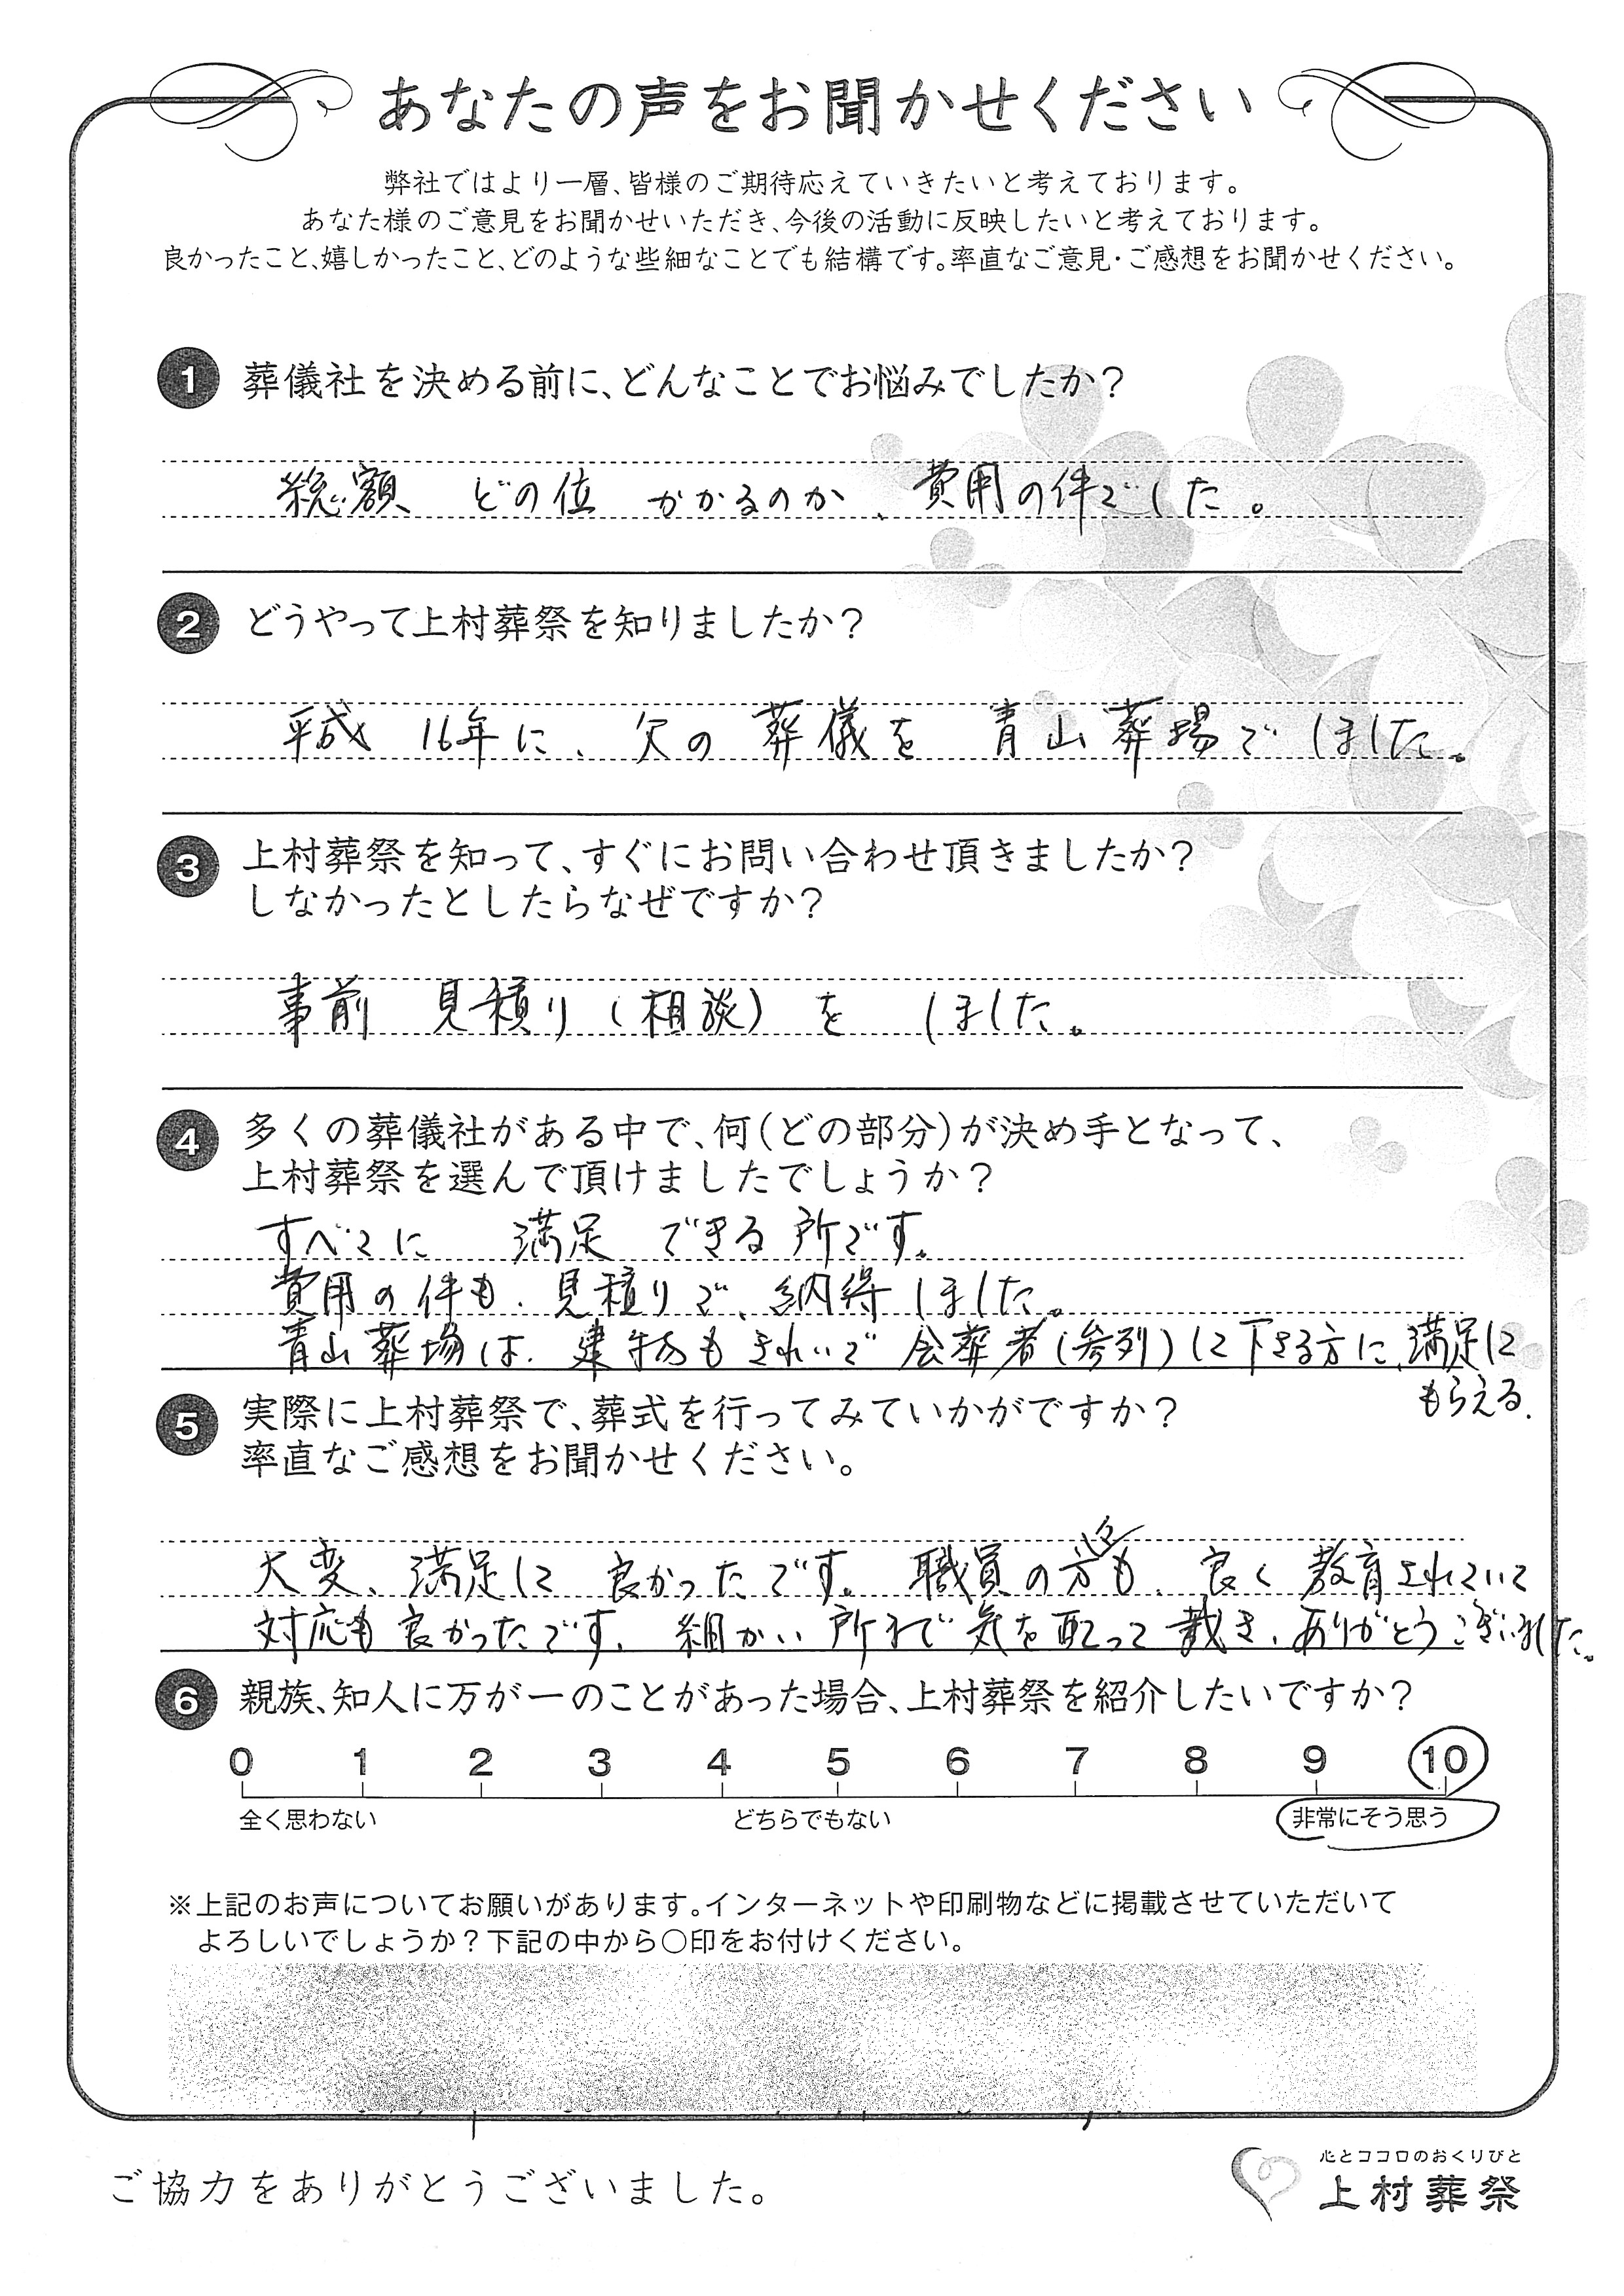 あなたの声をお聞かせください
弊社ではより一層、皆様のご期待応えていきたいと考えております。
あなた様のご意見をお聞かせいただき、今後の活動に反映したいと考えております。
良かったこと、嬉しかったこと、どのような些細なことでも結構です。率直なご意見・ご感想をお聞かせください。
1 葬儀社を決める前に、どんなことでお悩みでしたか？
総額 どの位 かかるのか、費用の件でした。
2 どうやって上村葬祭を知りましたか？
平成 16年に、父の 葬儀を 青山葬場で しました。
3 上村葬祭を知って、すぐにお問い合わせ頂きましたか？
しなかったとしたらなぜですか？
事前 見積り（相談）を しました。
4 多くの葬儀社がある中で、何（どの部分）が決め手となって、
上村葬祭を選んで頂けましたでしょうか？
すべてに 満足 できる所です。
費用の件も、見積りで、納得しました。
青山葬場は、建物もきれいで 会葬者（参列）して下さる方に、満足して
もらえる。
5 実際に上村葬祭で、葬式を行ってみていかがですか？
率直なご感想をお聞かせください。
大変、満足して 良かったです。職員の方々も、良く 教育されていて
対応も良かったです。細かい 所まで 気を配って 戴き、ありがとうございました。
6 親族、知人に万が一のことがあった場合、上村葬祭を紹介したいですか？
0 1 2 3 4 5 6 7 8 9 10
全く思わない どちらでもない 非常にそう思う
※上記のお声についてお願いがあります。インターネットや印刷物などに掲載させていただいて
よろしいでしょうか？下記の中から○印をお付けください。
ご協力をありがとうございました。
心とココロのおくりびと
上村葬祭